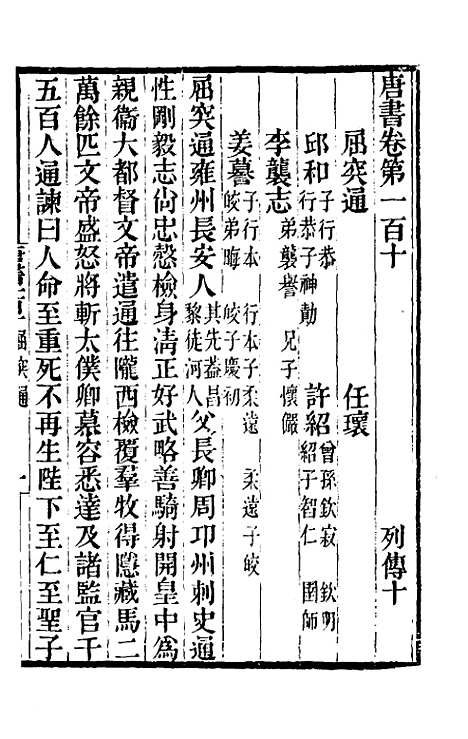 唐書卷第一百十 列傳十
屈突通 任瓌
邱和子行恭 行恭子神勣 許紹曾孫欽寂 欽明 紹子智仁 圉師
李襲志弟襲譽 兄子懷儼
姜謩子行本 行本子柔遠 柔遠子皎 皎弟晦 皎子慶初
屈突通雍州長安人其先蓋昌黎徒河人父長卿周邛州刺史通
性剛毅志尙忠慤檢身淸正好武略善騎射開皇中爲
親衞大都督文帝遣通往隴西檢覆羣牧得隱藏馬二
萬餘匹文帝盛怒將斬太僕卿慕容悉達及諸監官千
五百人通諫曰人命至重死不再生陛下至仁至聖子
屈突通
一